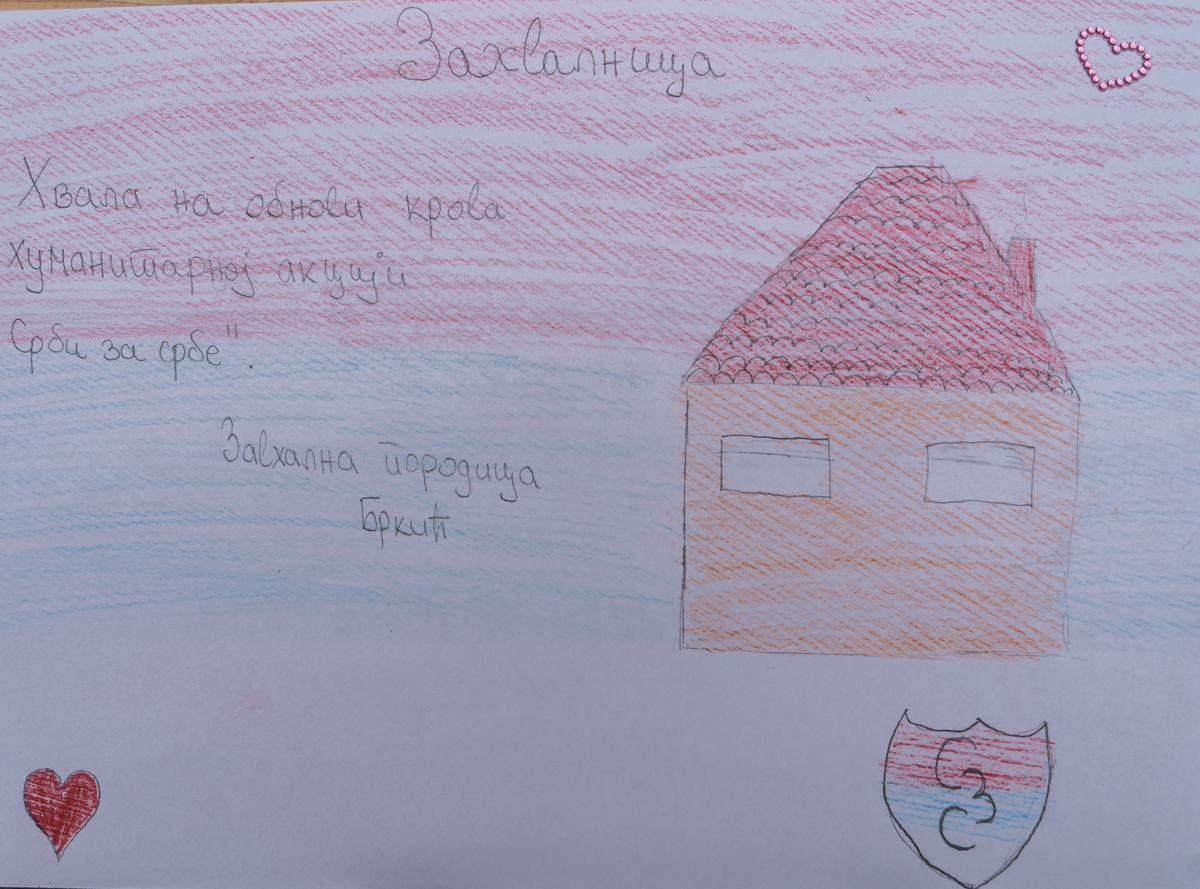 Захвалница
Хвала на обнови крова
хуманитарној акцији
Срби за србе".
Завхална породица
Бркић
С
З
С